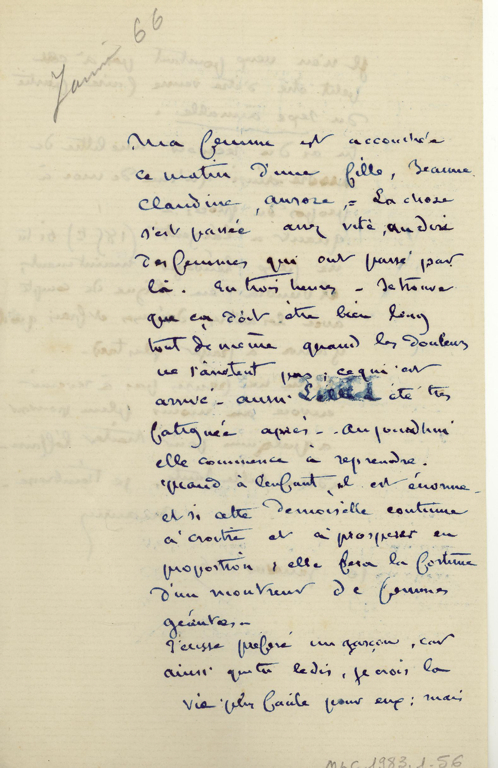 Janv 66
Ma femme est accouchée
ce matin d'une fille, Jeanne
Claudine, aurore, = La chose
s'est passée assez vite, au dire
des femmes qui ont passé par
là. En trois heures - Je trouve
que ça doit être bien long
tout de même quand les douleurs
ne s'arrêtent pas, ce qui est
arrivé - aussi été très
fatiguée après - aujourd'hui
elle commence à reprendre.
Quand à l'enfant, il est énorme -
et si cette demoiselle continue
à croître et à prospérer en
proportion, elle fera la fortune
d'un montreur de femmes
géantes -
J'eusse préféré un garçon, car
ainsi que tu le dis, je crois la
vie plus facile pour eux ; mais
1983.1-56